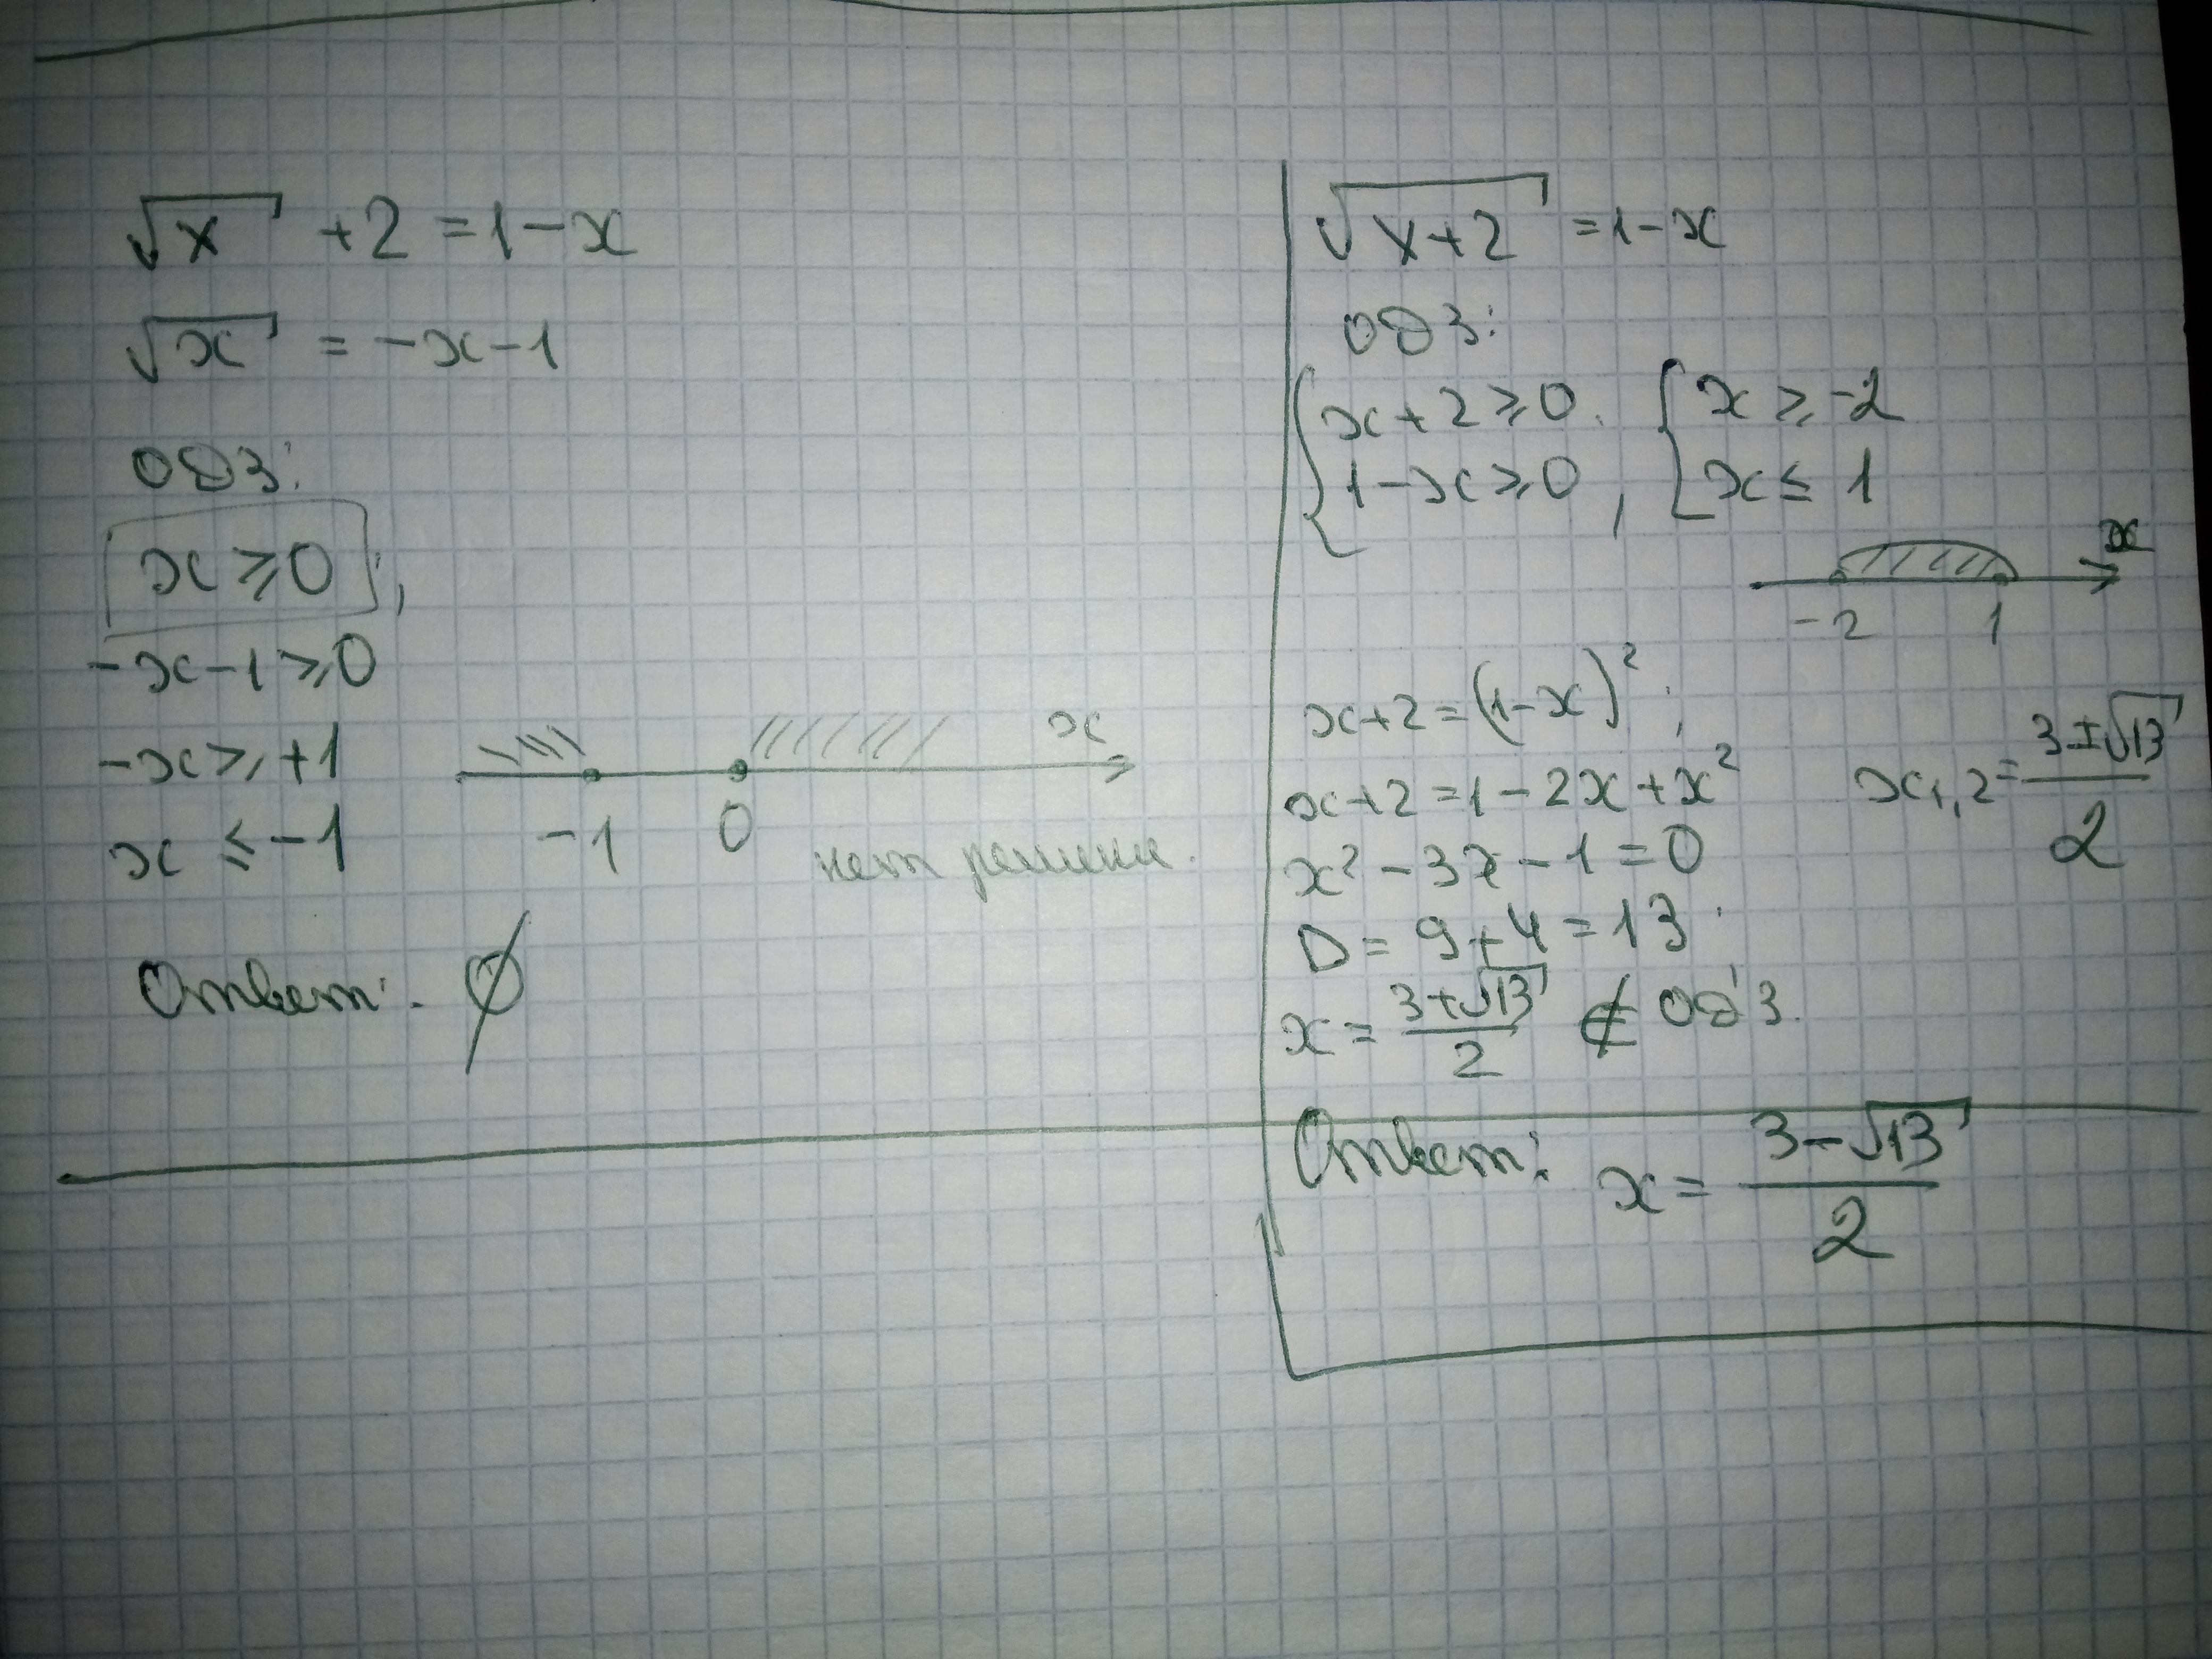 √x + 2 = 1 - x
√x = -x - 1
ОДЗ:
x ≥ 0,
-x - 1 ≥ 0
-x ≥ +1
x ≤ -1
x
-1 0
нет решени
Ответ: ∅
√x+2 = 1 - x
ОДЗ:
{ x + 2 ≥ 0 { x ≥ -2
1 - x ≥ 0, x ≤ 1
x
-2 1
x+2 = (1-x)²;
x+2 = 1 - 2x + x²
x² - 3x - 1 = 0
D = 9 + 4 = 13
x = (3+√13)/2 ∉ ОДЗ
x1,2 = (3±√13)/2
Ответ: x = (3-√13)/2